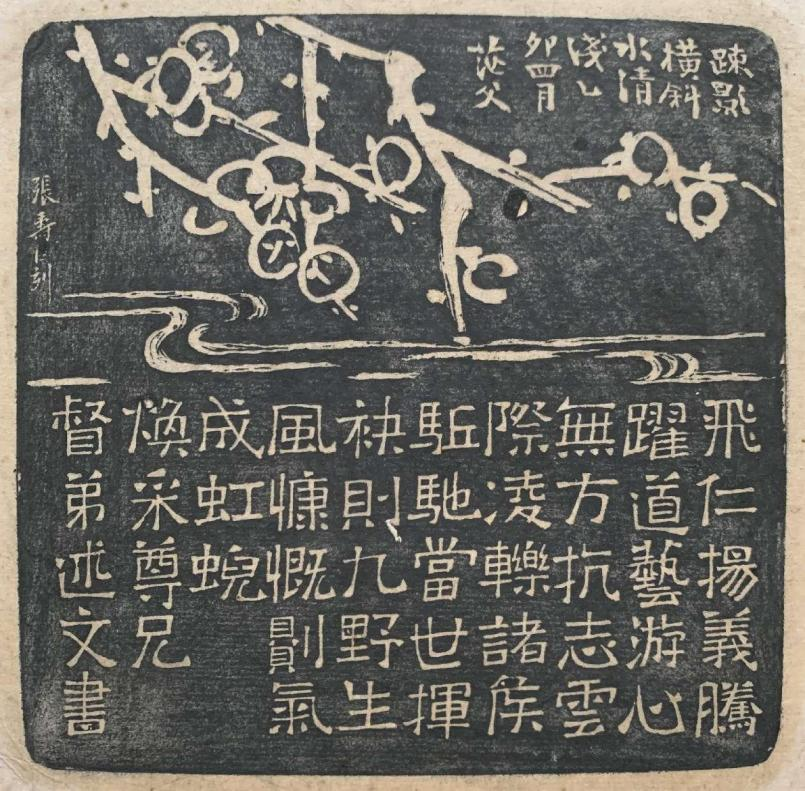 疎影
橫斜
水清
淺乙
卯四月
茫父
張壽丞刻
飛仁揚義騰
躍道藝游心
無方抗志雲
際凌轢諸侯
駈馳當世揮
袂則九野生
風慷慨則氣
成虹蜺
煥采尊兄
督弟述文書